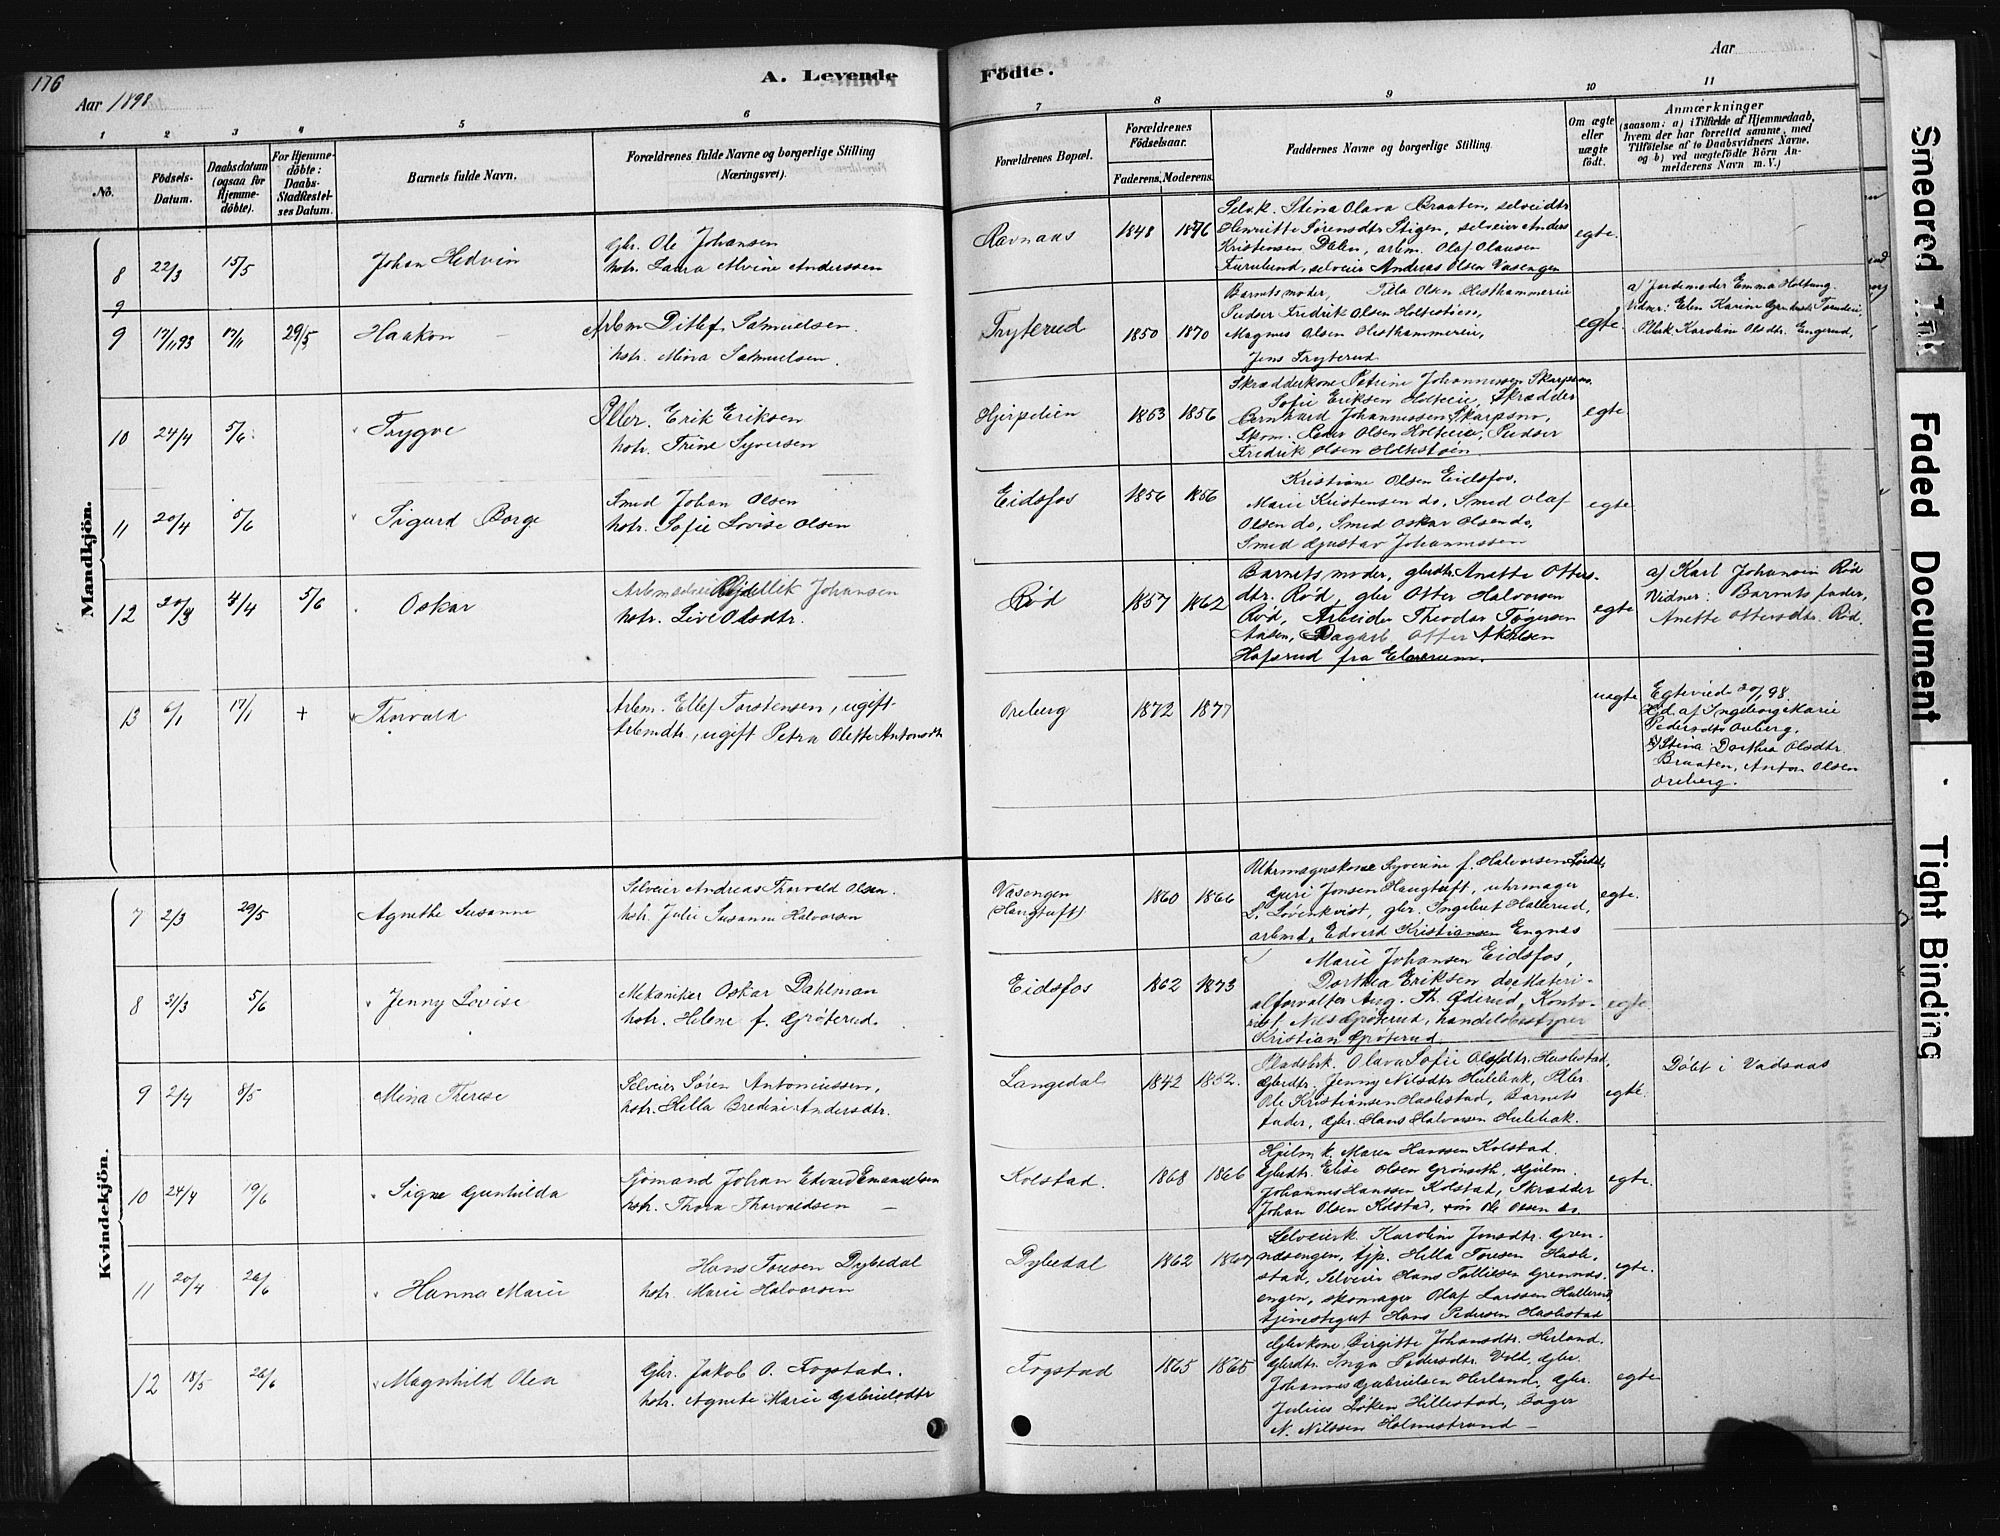 176
Aar 1898
A. Levende
Födte.
Aar
1
2
3
4
5
6
7
8
9
10
11
No.
Födsels-
Datum.
Daabsdatum
(ogsaa for
Hjemme-
döbte).
For Hjemme-
döbte:
Daabs-
Stadfæstel-
ses Datum.
Barnets fulde Navn.
Forældrenes fulde Navne og borgerlige Stilling
(Næringsvei).
Forældrenes Bopæl.
Forældrenes
Födselsaar.
Faderens.
Moderens.
Faddernes Navne og borgerlige Stilling.
Om ægte
eller
uægte
födt.
Anmærkninger
(saasom: a) i Tilfælde af Hjemmedaab,
hvem der har forrettet samme, med
Tilföielse af to Daabsvidners Navne,
og b) ved uægtefödte Börn An-
melderens Navn m. V.)
Mandkjön.
8
22/3
15/5
Johan Hedvin
Gbr. Ole Johansen
hstr. Laura Alvine Anderssen
Ravnaas
1848
1876
Selvk. Stina Olava Braaten, selveidtr
Henriette Sørensdtr Stigen, selveier Anders
Kristensen Dalen, arbm. Olaf Olausen
Furulund, selveier Andreas Olsen Vasengen
egte.
9
9
17/11 93
17/11
29/5
Haakon
Arbm Ditlef Samuelsen.
hstr. Mina Samuelsen.
Tryterud
1850
1870
Barnets moder, Olsen Hesthammereie
Pudser Fredrik Olsen Holtestøen,
Magnus Olsen Hesthammereie,
Jens Tryterud
egte
a) Jordemoder Emma Holtung.
Vidner: Elen Karine
Karoline Olsdtr. Engerud,
10
24/4
5/6
Trygve
Pller. Erik Eriksen
hstr. Trine Syversen
Hjerpelien
1863
1856
Skrædderkone Petrine Johannessen Skarpsno.
Sofie Eriksen Holteeie, Skrædder
Bernhard Johannessen Skarpsno,
Skom. Peder Olsen Holteeie, Pudser
Fredrik Olsen Holtestøen.
egte
11
20/4
5/6
Sigurd Borge
Smed Johan Olsen
hstr. Sofie Lovise Olsen
Eidsfos
1856
1856
Kristiane Olsen Eidsfos.
Marie Kristensen do, Smed Olaf
Olsen do, Smed Oskar Olsen do,
Smed Gustav Johannessen
egte
12
20/3
4/4
5/6
Oskar
Johansen
hstr. Live Olsdtr.
Rød
1857
1862
Barnets moder, gbrdtr. Anette Otters-
dtr. Rød, gbr Otter Halvorsen
Rød, Arbeider Theodor Tøgersen
Aasen, Dagarb. Otter Akelsen
Hofsrud fra
egte
a) Karl Johansen Rød
Vidner: Barnets fader,
Anette Ottersdtr. Rød.
13
6/1
17/1
+
Thorvald
Arbm. Ellef Torstensen, ugift
Arbmdtr, ugift Petra Olette Antonsdtr
Oreberg
1872
1877
uegte
Egteviede 20/1 98.
Hjd. af Ingeborg Marie
Pedersdtr Oreberg.
Stina Dorthea Olsdtr.
Braaten, Anton Olsen
Oreberg.
Kvindekjön.
7
2/3
29/5
Agnethe Susanne
Selveier Andreas Thorvald Olsen.
hstr. Julie Susanne Halvorsen
Vasengen
(Haugtuft)
1860
1866
Uhrmagerskone Syverine f. Halvorsen
Guri Jonsen Haugtuft, uhrmager
L. Løvenkvist, gbr. Ingebret Hallerud,
arbmd. Edvard Kristiansen Engnæs
egte.
8
31/3
5/6
Jenny Lovise
Mekaniker Oskar Dahlman
hstr. Helene f. Grøterud.
Eidsfos
1862
1873
Marie Johansen Eidsfos,
Dorthea Eriksen do, Materi-
alforvalter Aug. Th. Øderud, Konto-
rist Nils Grøterud, handelsbestyrer
Kristian Grøterud.
egte
9
2/4
8/5
Mina Therese
Selveier Søren Antoniussen,
hstr. Hella Bredine Andersdtr.
Langedal
1842
1852.
Pladsbk. Olava Sofie Olsdtr. Haslestad,
Gbrdtr. Jenny Nilsdtr Hulebak, Pller
Ole Kristiansen Haslestad, Barnets
fader, Gbr. Hans Halvorsen Hulebak.
egte.
Døbt i Vadsaas
10
24/4
19/6
Signe Gunhilda
Sjømand Johan Edvard Emanuelsen
hstr. Thora Thorvaldsen
Kolstad.
1868
1866
Hjulm.k. Maren Hanssen Kolstad.
Gbrdtr. Elise Olsen Grønseth, Hjulm.
Johannes Hanssen Kolstad, Skrædder
Johan Olsen Kolstad, Ole Olsen do.
egte.
11
20/4
26/6
Hanna Marie
Hans Toresen Dybedal
hstr. Marie Halvorsen
Dybedal
1862
1867
Selveierk. Karoline Jonsdtr. Gren-
ndsengen, tjp. Hella Toresen Hasle-
stad, Selveier Hans Tollefsen Grennds-
engen, skomager Olaf Larssen Hallerud
tjenestegut Hans Pedersen Haslestad
egte.
12
18/5
26/6
Magnhild Olea
Gbr. Jakob O. Fogstad.
hstr. Agnete Marie Gabrielsdtr
Fogstad
1865
1865
Gbrkone Birgitte Johansdtr. Herland.
Gbrdtr. Inga Pedersdtr. Vold, Gbr.
Johannes Gabrielsen Herland, Gbr.
Julius Løken Hillestad, Bager
N. Nilssen Holmestrand
egte
Smeared Ink
Faded Document
Tight Binding